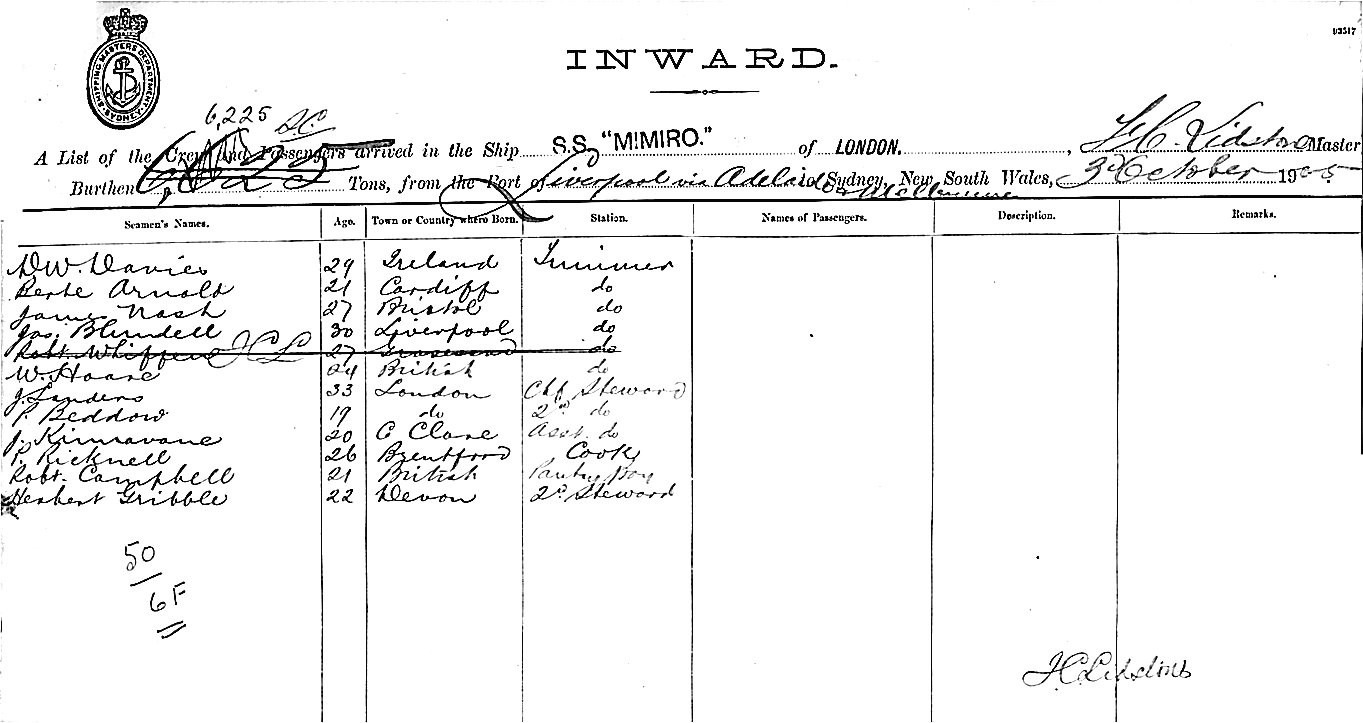 SHIPPING MASTERS DEPARTMENT. SYDNEY
03517
INWARD.
6,225
A List of the Crew and Passengers arrived in the Ship S.S. "MIMIRO." of LONDON, Master
Burthen Tons, from the Port of Liverpool via Adelaide & Melbourne to Sydney, New South Wales, 3d October 1905
Seamen's Names. Age. Town or Country where Born. Station. Names of Passengers. Description. Remarks.
D W. Davies 29 Ireland Trimmer
Berte Arnold 21 Cardiff do
James Nash 27 Bristol do
Jas. Blundell 30 Liverpool do
Robt. Whiffen 27 Gravesend do
W. Hoare 24 British do
J. Landers 33 London Chf Steward
P. Beddow 19 do 2nd do
J. Kinnavane 20 C Clare Asst. do
P. Ricknell 26 Brentford Cook
Robt. Campbell 21 British Pantry Boy
Herbert Gribble 22 Devon 2d Steward
50
6 F